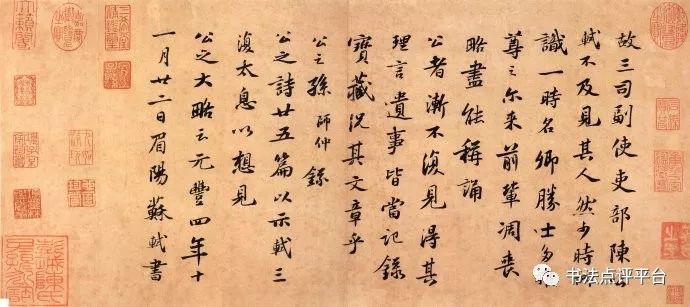 故三司副使吏部陳公
軾不及見其人然少時所
識一時名卿勝士多推
尊之尔来前輩凋喪
略盡能稱誦
公者漸不復見得其
理言遺事皆當記錄
寶藏況其文章乎
公之孫師仲錄
公之詩廿五篇以示軾三
復太息以想見
公之大略云元豐四年十
一月廿二日眉陽蘇軾書
书法点评平台